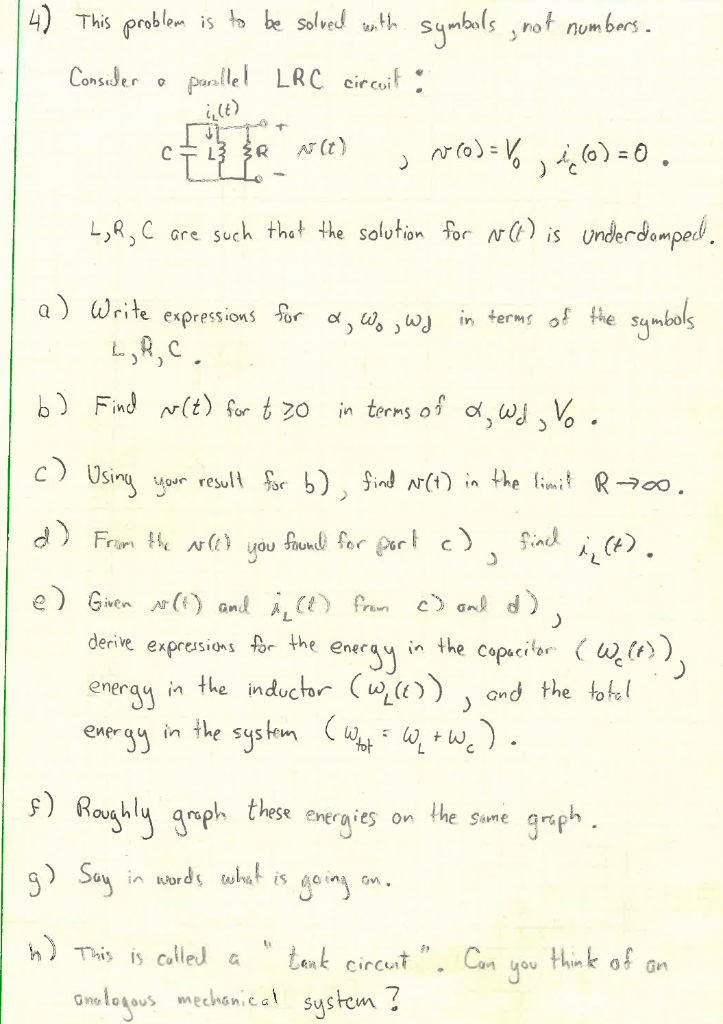 4) This problem is to be solved with symbols, not numbers.
Consider a parallel LRC circuit :
i_L(t)
C L R + v(t) - , v(0) = V₀ , i_c(0) = 0 .
L, R, C are such that the solution for v(t) is underdamped.
a) Write expressions for α, ω₀, ωd in terms of the symbols
L, R, C .
b) Find v(t) for t ≥ 0 in terms of α, ωd, V₀ .
c) Using your result for b), find v(t) in the limit R → ∞ .
d) From the v(t) you found for part c), find i_L(t) .
e) Given v(t) and i_L(t) from c) and d),
derive expressions for the energy in the capacitor (W_c(t)),
energy in the inductor (W_L(t)), and the total
energy in the system (W_tot = W_L + W_c) .
f) Roughly graph these energies on the same graph .
g) Say in words what is going on .
h) This is called a "tank circuit". Can you think of an
analogous mechanical system ?